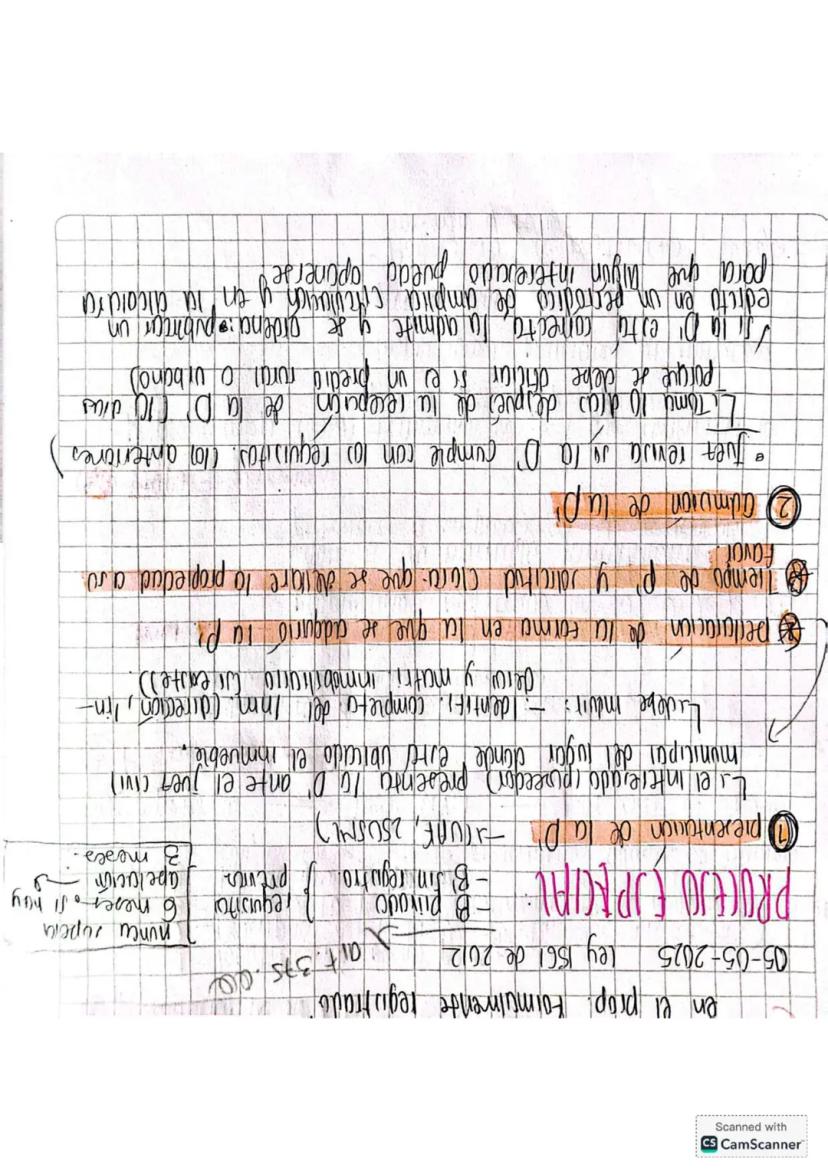 en el prop. Formalmente registrado
05-05-2025 Ley 1561 de 2012 art. 375.
PROCESO ESPECIAL
- B' privado
- B' sin registro
requisitos previos
nunca supera
6 meses. si hay
apelación →
3 meses.
① presentación de la D' → (UAF, 250SML)
↳ el interesado (poseedor) presenta la D' ante el juez civil
municipal del lugar donde está ubicado el inmueble.
↳ debe incluir: - Identifi. completa del Inm. (dirección, lin-
deros y matri. inmobiliario (si existe)).
Declaración de la forma en la que se adquirió la p'.
Tiempo de p' y solicitud clara: que se declare la propiedad a su
favor.
② admisión de la D'
• Juez revisa si la D' cumple con los requisitos. (los anteriores)
↳ Toma 10 días después de la recepción de la D' (10 días
porque se debe oficiar si es un predio rural o urbano)
✓ si la D' está correcta la admite y se ordena: publicar un
edicto en un periódico de amplia circulación y en la alcaldía
para que algún interesado pueda oponerse
Scanned with
CS CamScanner